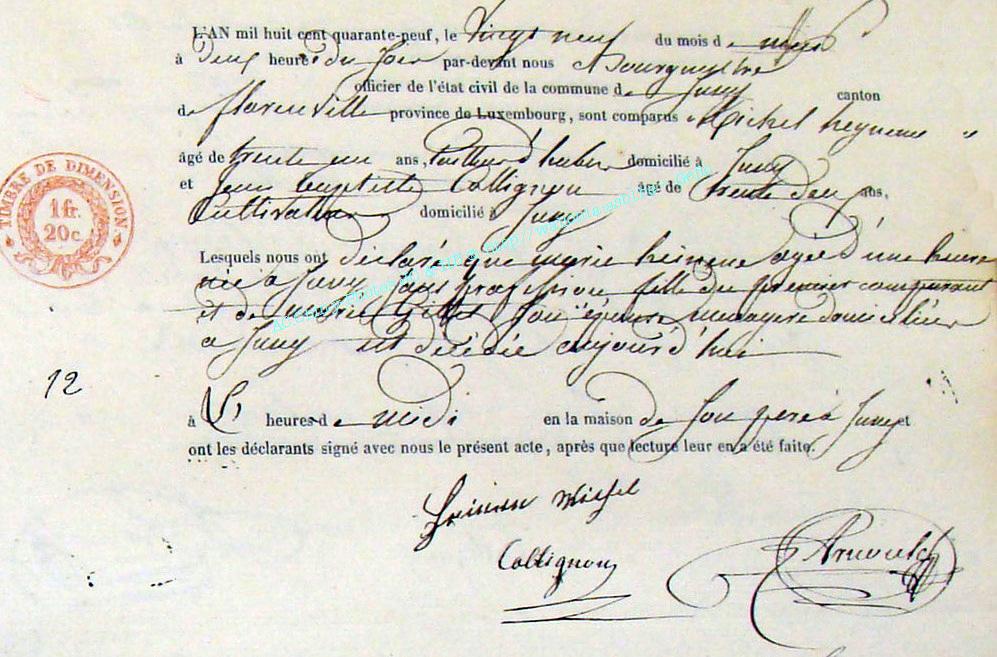 L'AN mil huit cent quarante-neuf, le Vingt neuf du mois de mars
à Deux heures du soir par-devant nous Bourguemestre
officier de l'état civil de la commune de Jamoigne canton
de florenville province de Luxembourg, sont comparus Michel heyneme
âgé de trente un ans, domicilié à
et Jean baptiste Collignon âgé de trente deux ans,
Cultivateur domicilié à
Lesquels nous ont déclaré que marie heineme agée d'une heure
née à sans profession fille du premier comparant
et de marie Gillet son épouse menagere domiciliée
à est décédée aujourd'hui
à heures de midi en la maison de son pere à et
ont les déclarants signé avec nous le présent acte, après que lecture leur en a été faite.
TIMBRE DE DIMENSION
1 fr.
20 c.
12
heinem Michel
Collignon
Arnould